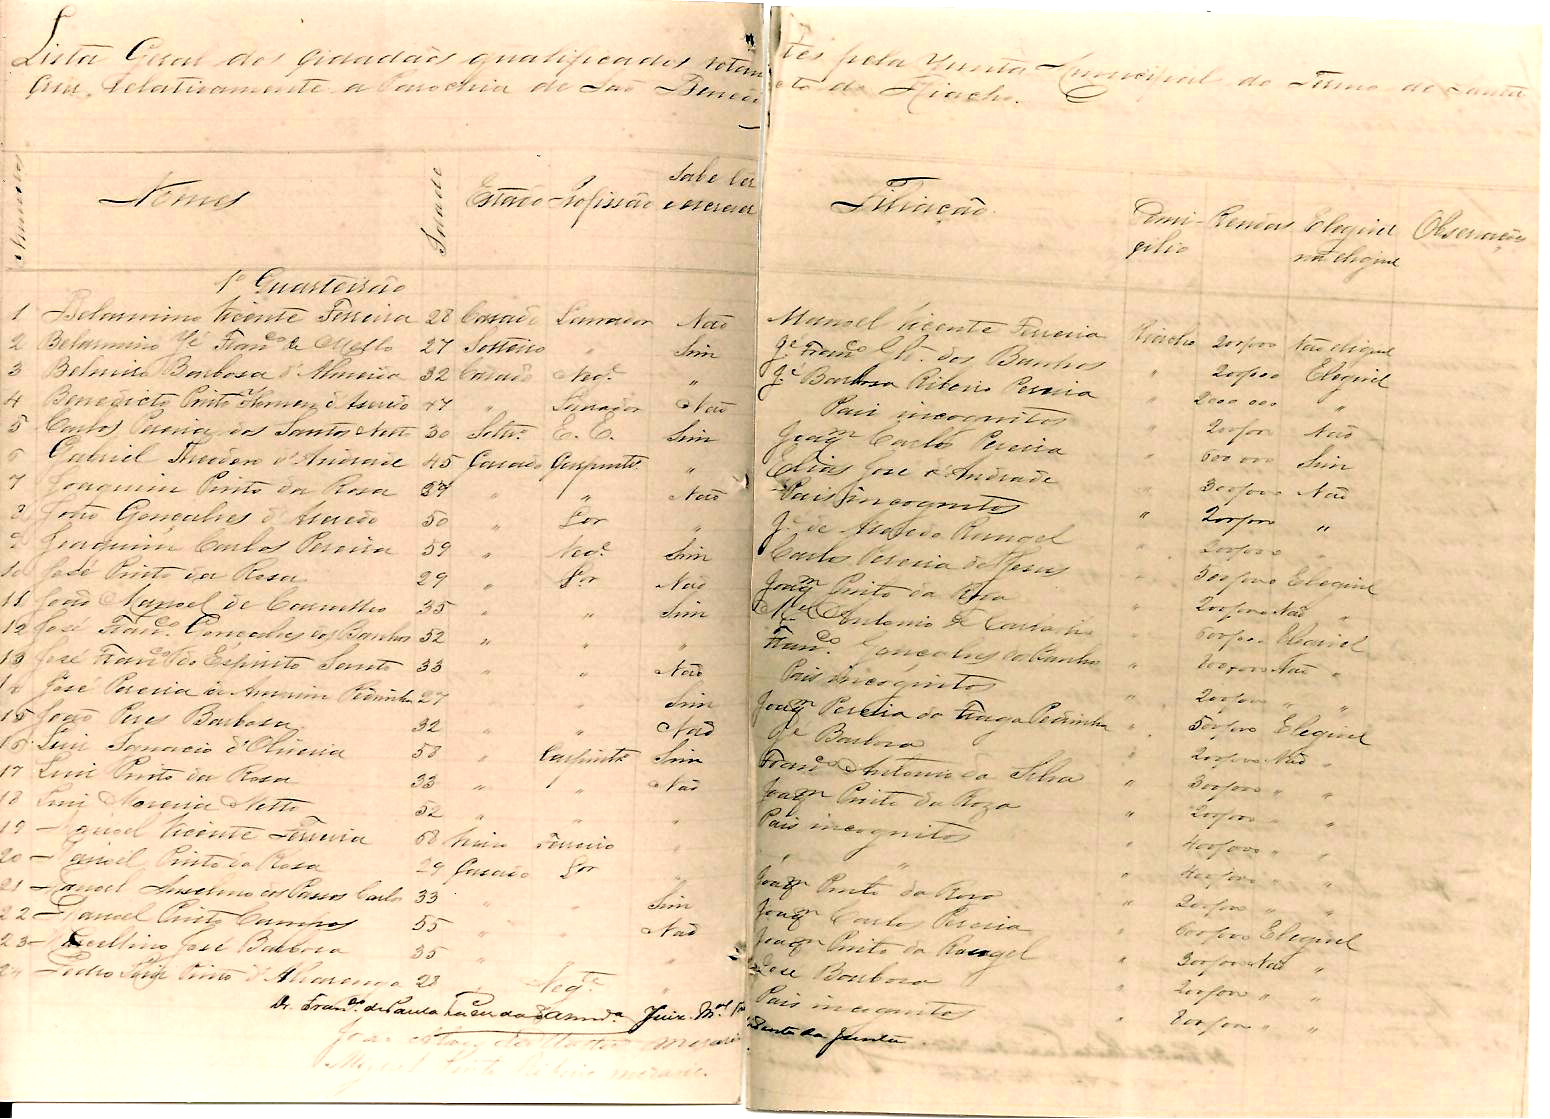 Lista Geral dos cidadãos qualificados votantes pela Junta Municipal do Termo de Santa
Cruz, relativamente a Parochia de São Benedicto do Riacho.
Numeros Nomes Idade Estado Profissão Sabe ler e escrever Filiação Domicilio Rendas Elegivel não elegivel Observações
1º Quarteirão
1 Belarmino Vicente Ferreira 28 Casado Lavrador Não Manoel Vicente Ferreira Riacho 200$000 Não elegivel
2 Belarmino Franco de Mello 27 Solteiro " Sim Je Franco dos Banhos " 200$000 Elegivel
3 Belmiro Barbosa d'Almeida 32 Casado Nege " Je Barbosa Ribeiro Pereira " 2000 000 "
4 Benedicto Pinto d'Azeredo 47 " Lavrador Não Pais incognitos " 200$000 Não
5 Carlos Pereira dos Santos Netto 30 Soltro E. E. Sim Joaqm Carlos Pereira " 600 000 Sim
6 Gabriel Theodoro d'Andrade 45 Casado Carpinto " Elias José d'Andrade " 300$000 Não
7 Joaquim Pinto da Rosa 37 " " Não Pais incognitos " 200$000 "
8 João Gonçalves d'Azeredo 50 " Lor " Je de Azeredo Rangel " 200$000 "
9 Joaquim Carlos Pereira 59 " Nege Sim Carlos Pereira de Jesus " 500$000 Elegivel
10 José Pinto da Rosa 29 " Lor Não Joaqm Pinto da Rosa " 200$000 Não
11 João Manoel de Carvalho 35 " " Sim Mel Antonio de Carvalho " 600$000 Elegivel
12 José Franco Gonçalves dos Banhos 52 " " " Franco Gonçalves dos Banhos " 200$000 Não
13 José Franco do Espirito Santo 33 " " Não Pais incognitos " 200$000 " "
14 José Pereira de Amorim Pedrinha 27 " " Sim Joaqm Pereira da Fraga Pedrinha " 500$000 Elegivel
15 João Peres Barbosa 32 " " Não Je Barbosa " 200$000 Não "
16 Luis Ignacio d'Oliveira 58 " Carpinto Sim Franco Antonio da Silva " 300$000 " "
17 Luis Pinto da Rosa 33 " " Não Joaqm Pinto da Roza " 200$000 " "
18 Luis Moreira Netto 52 " " " Pais incognitos " 400$000 " "
19 Manoel Vicente Ferreira 58 Viuvo Ferreiro " " " " 400$000 " "
20 Manoel Pinto da Rosa 29 Casado Lor " Joaqm Pinto da Rosa " 200$000 " "
21 Manoel Anselmo dos Passos Carlos 33 " " Sim Joaqm Carlos Pereira " 600$000 Elegivel
22 Manoel Pinto Campos 55 " " Não Joaqm Pinto da Rangel " 300$000 Não "
23 Marcellino José Barbosa 35 " " " José Barbosa " 200$000 " "
24 Pedro Luiz Pinto d'Alvarenga 23 " Nege " Pais incognitos " 800$000 " "
Dr. Franco de Paula Juiz Mal Presidente da Junta
mesario
Miguel Pinto Ribeiro mesario.